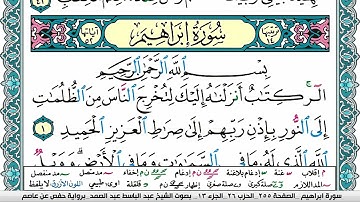 سُورَةُ إِبْرَاهِيمَ
بِسْمِ ٱللَّهِ ٱلرَّحْمَٰنِ ٱلرَّحِيمِ
الٓر كِتَٰبٌ أَنزَلْنَٰهُ إِلَيْكَ لِتُخْرِجَ ٱلنَّاسَ مِنَ ٱلظُّلُمَٰتِ
إِلَى ٱلنُّورِ بِإِذْنِ رَبِّهِمْ إِلَىٰ صِرَٰطِ ٱلْعَزِيزِ ٱلْحَمِيدِ ١
ٱللَّهِ ٱلَّذِى لَهُۥ مَا فِى ٱلسَّمَٰوَٰتِ وَمَا فِى ٱلْأَرْضِ وَوَيْلٌ
سورة إبراهيم . الصفحة ٢٥٥ الحزب ٢٦ . الجزء ١٣ . بصوت الشيخ عبد الباسط عبد الصمد. برواية حفص عن عاصم